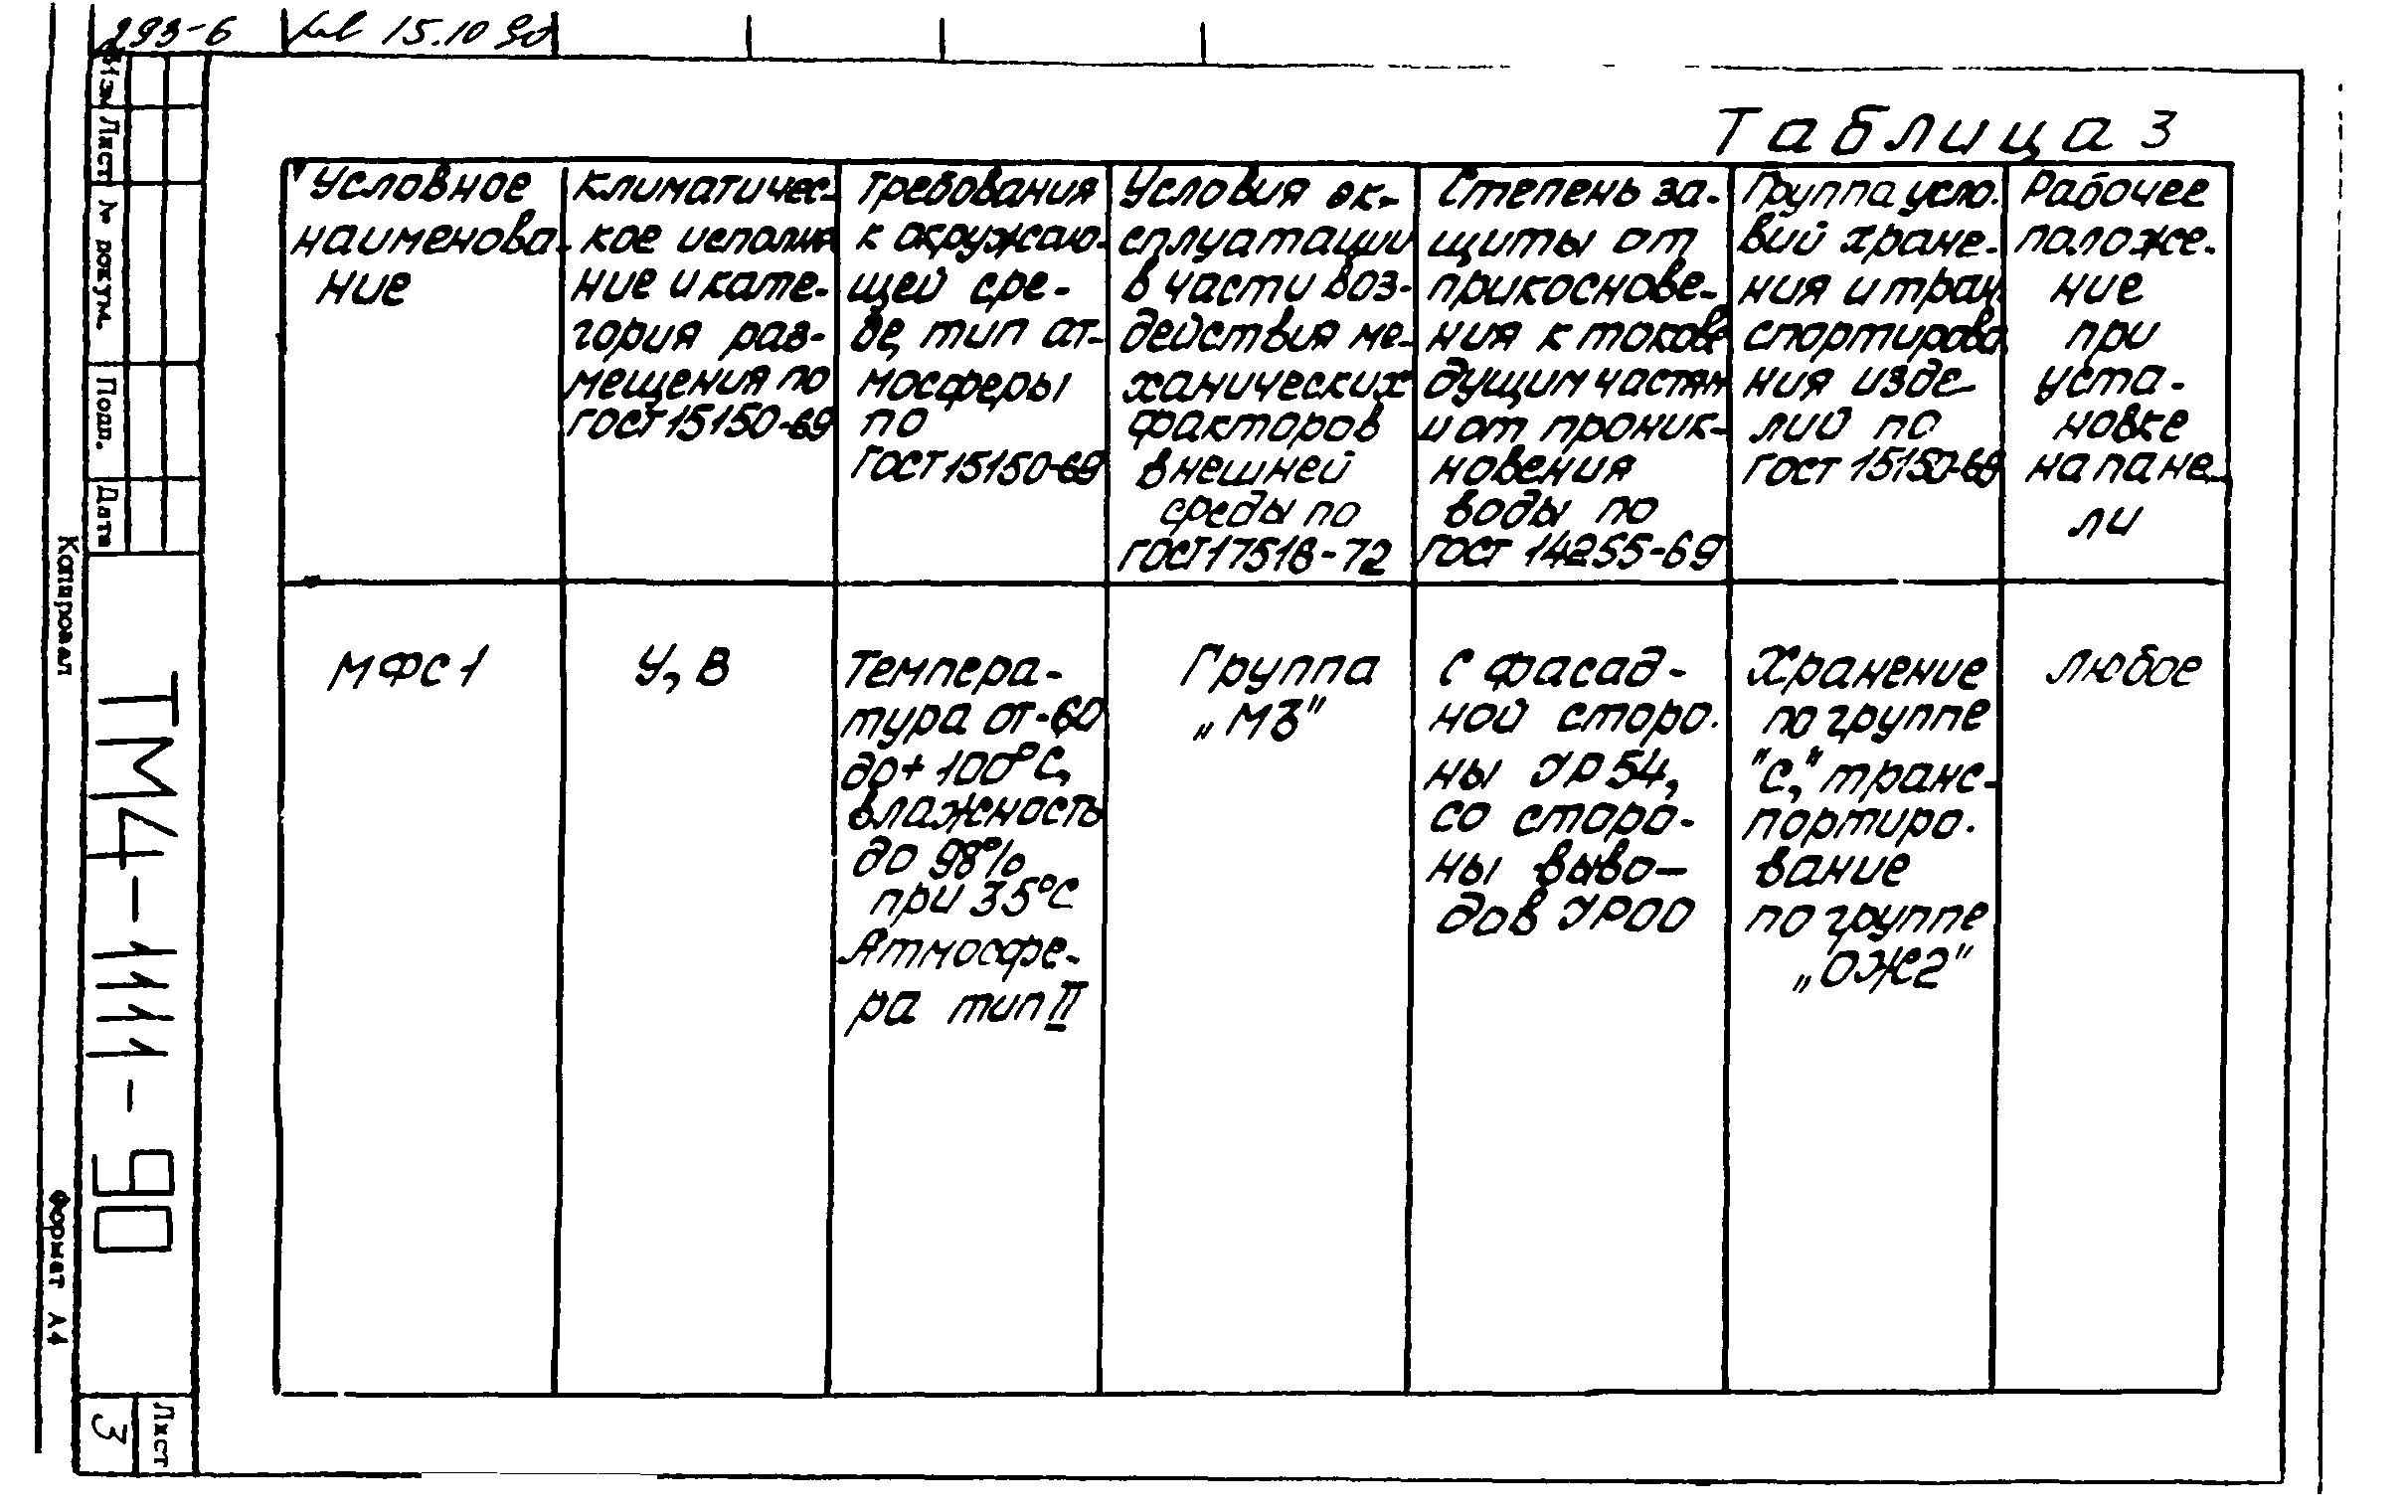 293-6 15.10.90
Таблица 3
Условное
наименова-
ние
климатичес-
кое исполне
ние и кате-
гория раз-
мещения по
ГОСТ 15150-69
Требования
к окружаю-
щей сре-
де, тип ат-
мосферы
по
ГОСТ 15150-69
Условия эк-
сплуатации
в части воз-
действия ме-
ханических
факторов
внешней
среды по
ГОСТ 17516-72
Степень за-
щиты от
прикоснове-
ния к токове
дущим частям
и от проник-
новения
воды по
ГОСТ 14255-69
Группа усло-
вий хране-
ния и тран
спортирова
ния изде-
лий по
ГОСТ 15150-69
Рабочее
положе-
ние
при
уста-
новке
на пане-
ли
МФС1
У, В
Темпера-
тура от -60
до + 100°С,
влажность
до 98%
при 35°С
Атмосфе-
ра тип II
Группа
„М3"
С фасад-
ной сторо-
ны УР54,
со сторо-
ны выво-
дов УР00
Хранение
по группе
"С," транс-
портиро-
вание
по группе
„ОЖ2"
любое
Изм Лист № докум. Подп. Дата
ТМ4-1111-90
Лист
3
Копировал
Формат А4